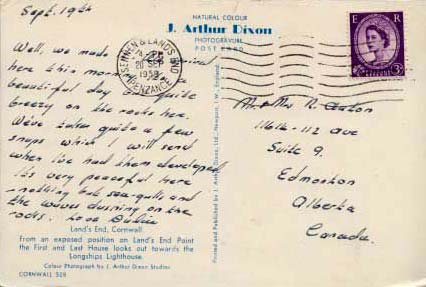 Sept. 19th
Well, we made
here this mor
beautiful day quite
breezy on the rocks here.
We've taken quite a few
snaps which I will send
when I've had them developed
It's very peaceful here
- nothing but sea-gulls and
the waves dashing on the
rocks. Love
Land's End, Cornwall
From an exposed position on Land's End Point
the First and Last House looks out towards the
Longships Lighthouse.
Colour Photograph by J. Arthur Dixon Studios
CORNWALL 528
NATURAL COLOUR
J. Arthur Dixon
PHOTOGRAVURE
POST CARD
SENNEN & LANDS END
PENZANCE
20 SEP
1959
Printed and Published by J. Arthur Dixon, Ltd., Newport, I.W., England.
E R
3D
Mr & Mrs R.
11614-112 ave
Suite 9.
Edmonton
Alberta
Canada.